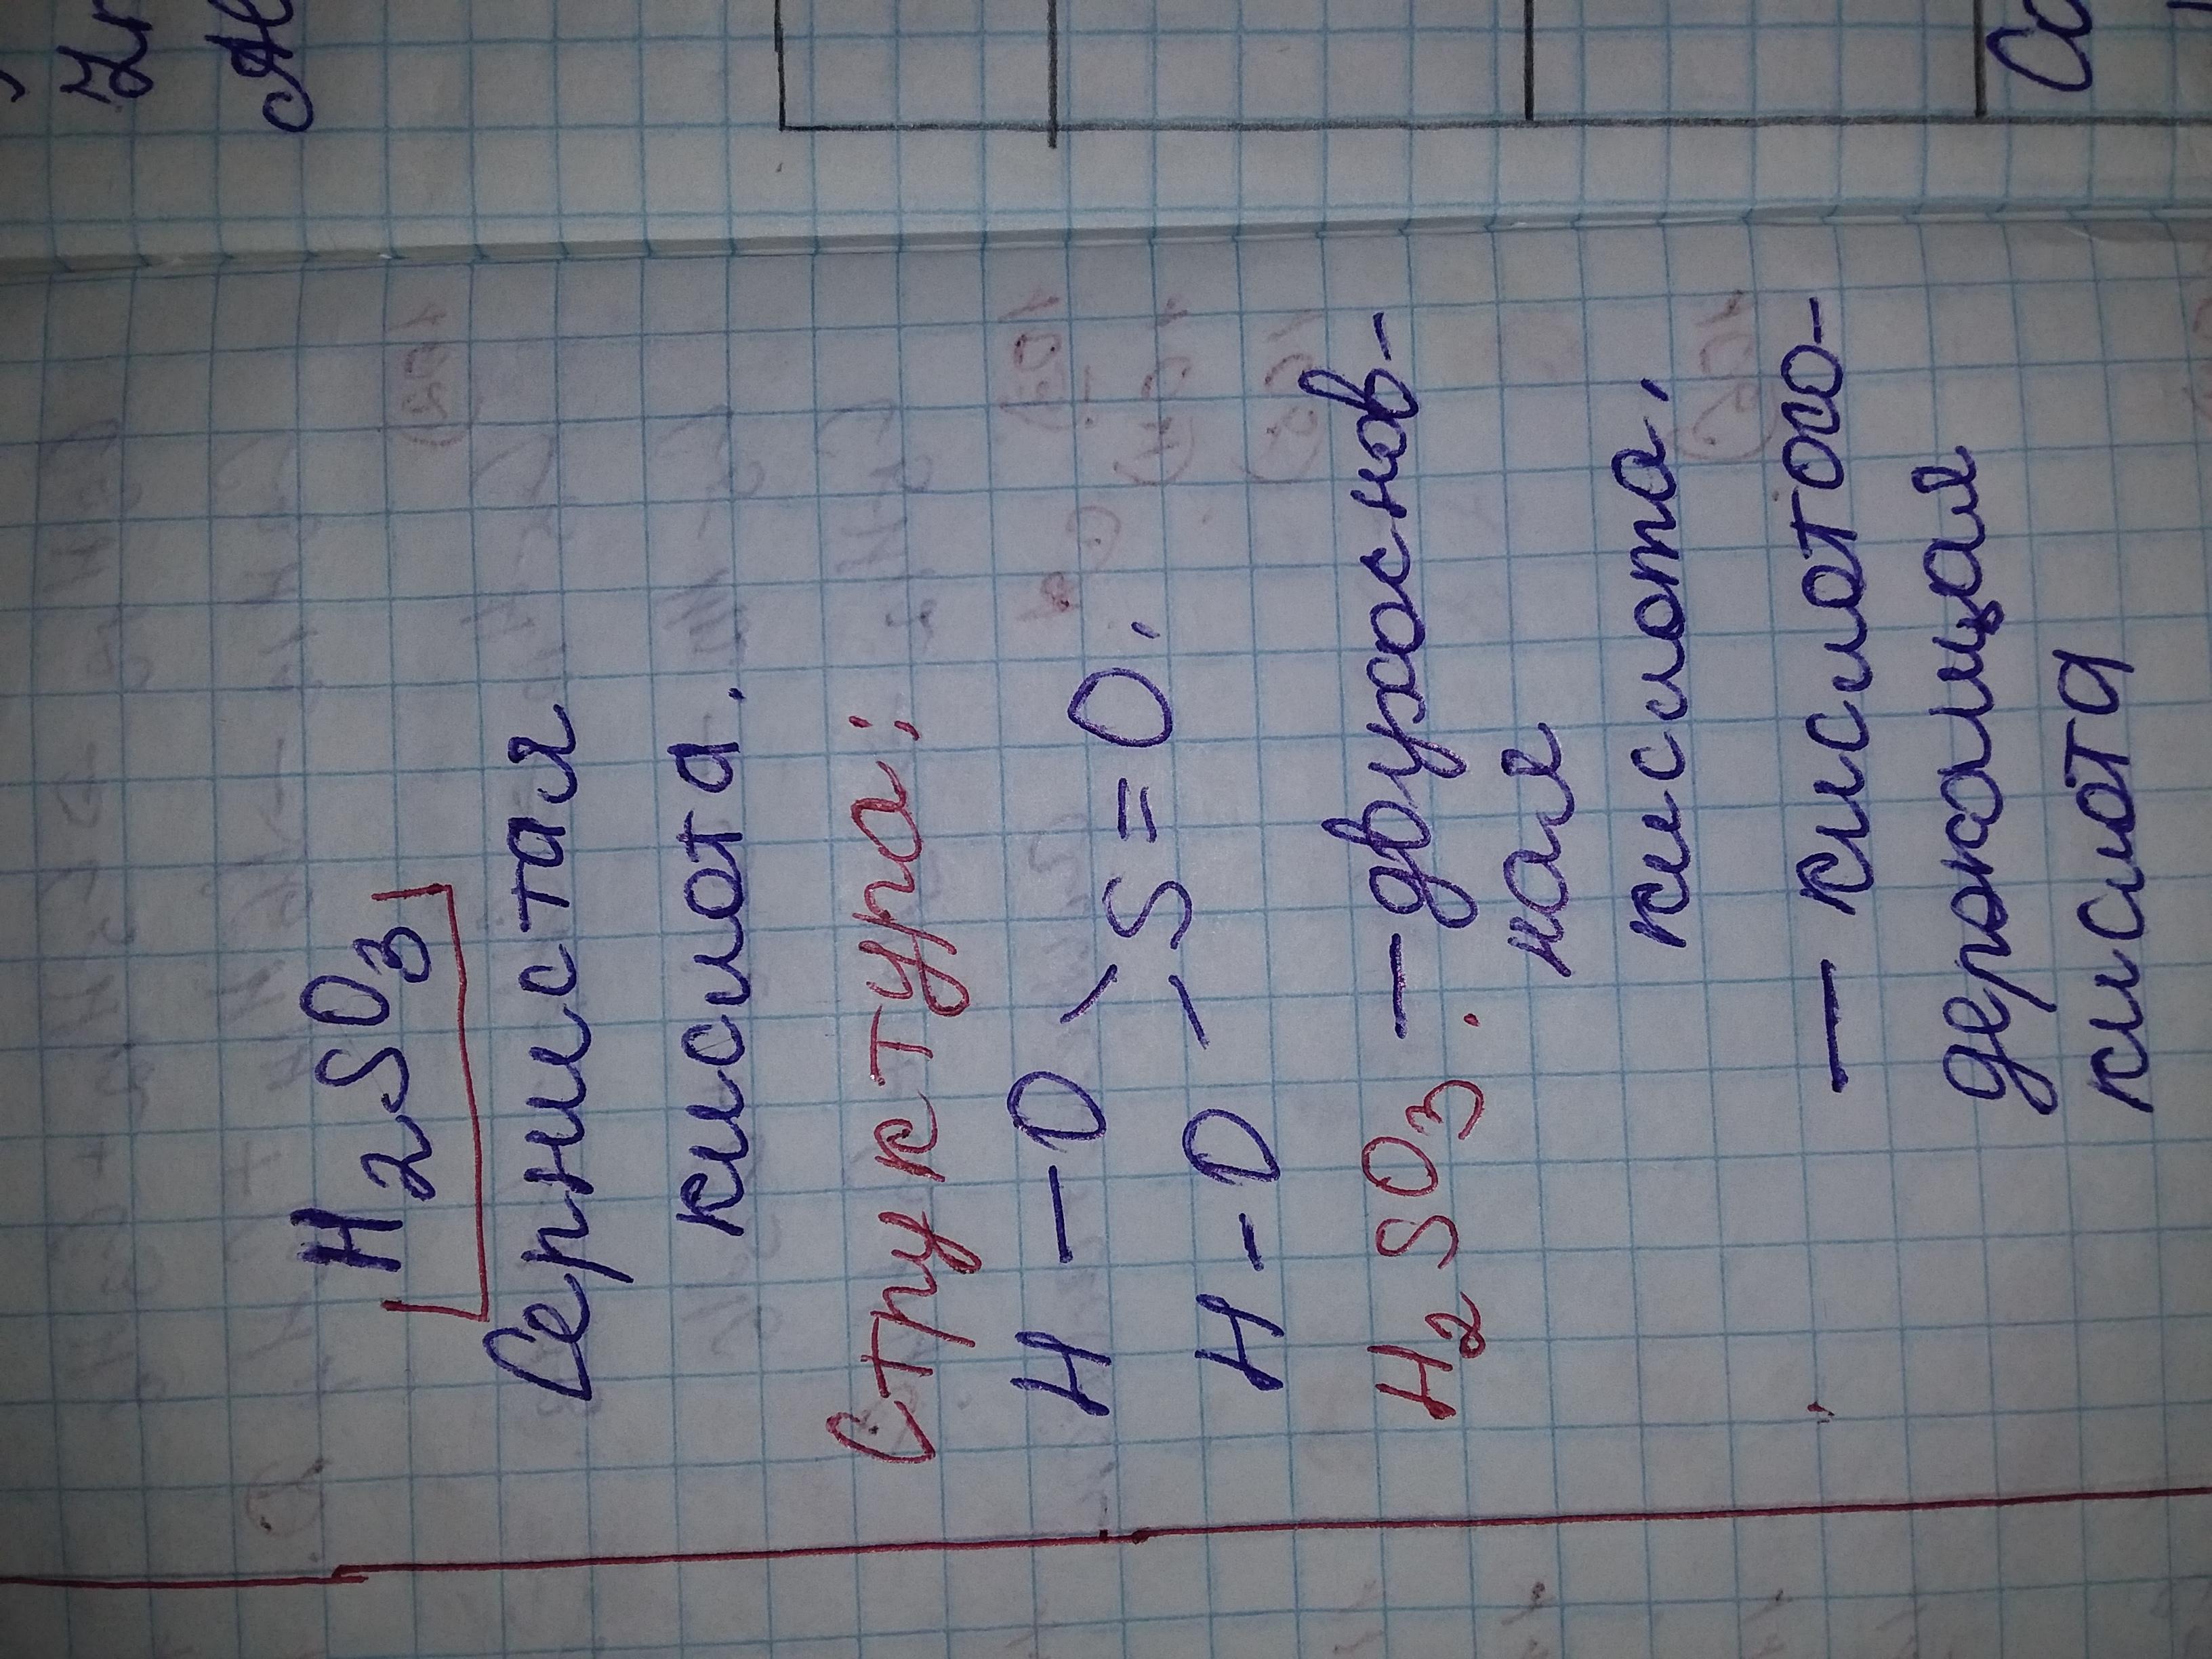 H₂SO₃
Сернистая
кислота.
Структура:
H – O \
S = O.
H – O /
H₂SO₃. – двухоснов-
ная
кислота,
– кислотосо-
держащая
кислота